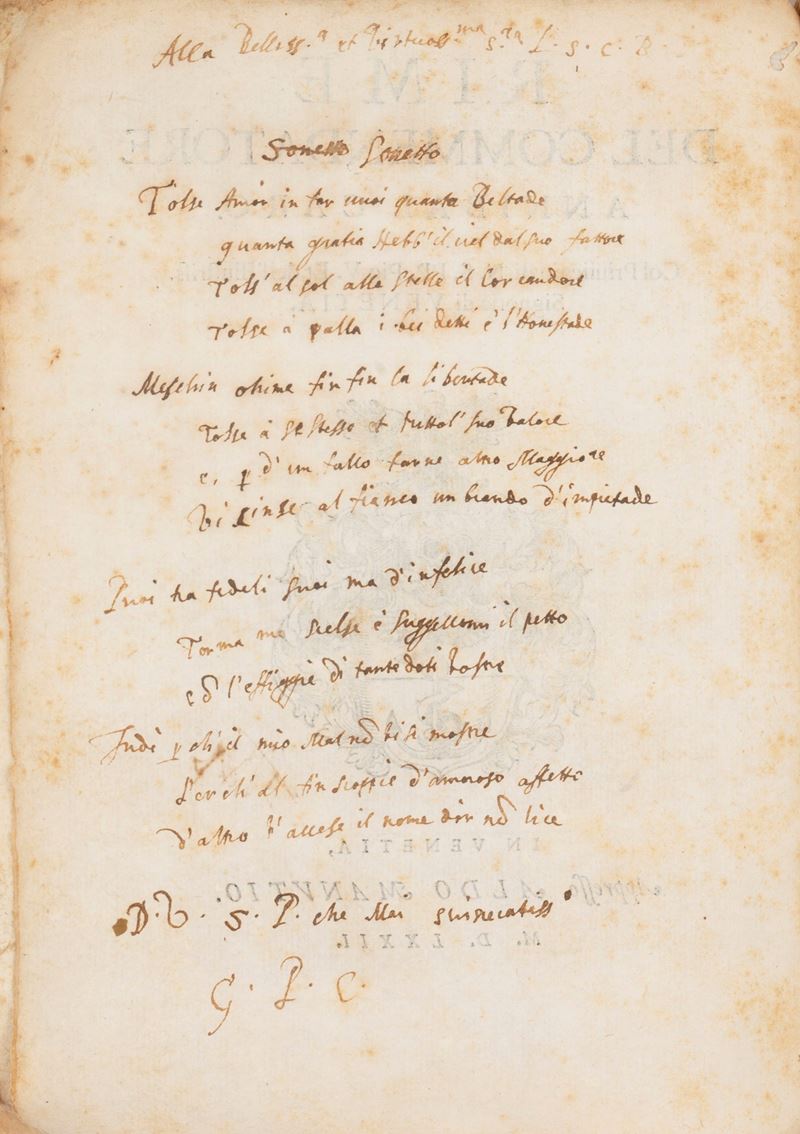 Alla Belliss.a et Virtuoss.ma S.ra L. S. C. B.
Sonetto Sonetto
Tolse Amor in far vuoi quanta Beltade
quanta gratia Hebb' il ciel dal suo fattore
Tols' al sol alle stelle il lor candore
Tolse à palla i bei detti è l'Honestade
Meschin ohime fin fin la libertade
Tolse à se stesso et tutto l' suo Valore
e, p d'un fallo farne altro Maggiore
Vi cinse al fianco un brando d'impietade
Puoi ha fideli suoi ma d'infelice
Torma me scelse è suggellommi il petto
l'effiggie di tante doti Vostre
Indi p ch' il mio Mal nō vi si mostre
Perch' al fin scoppie d'amoroso affetto
d'altro accese il nome dir nō lice
D. V. S. P. che Mai
G. P. C.
RIME
DEL COMMENDATORE
IN VENETIA,
Appresso ALDO MANVTIO.
M. D. LXXII.